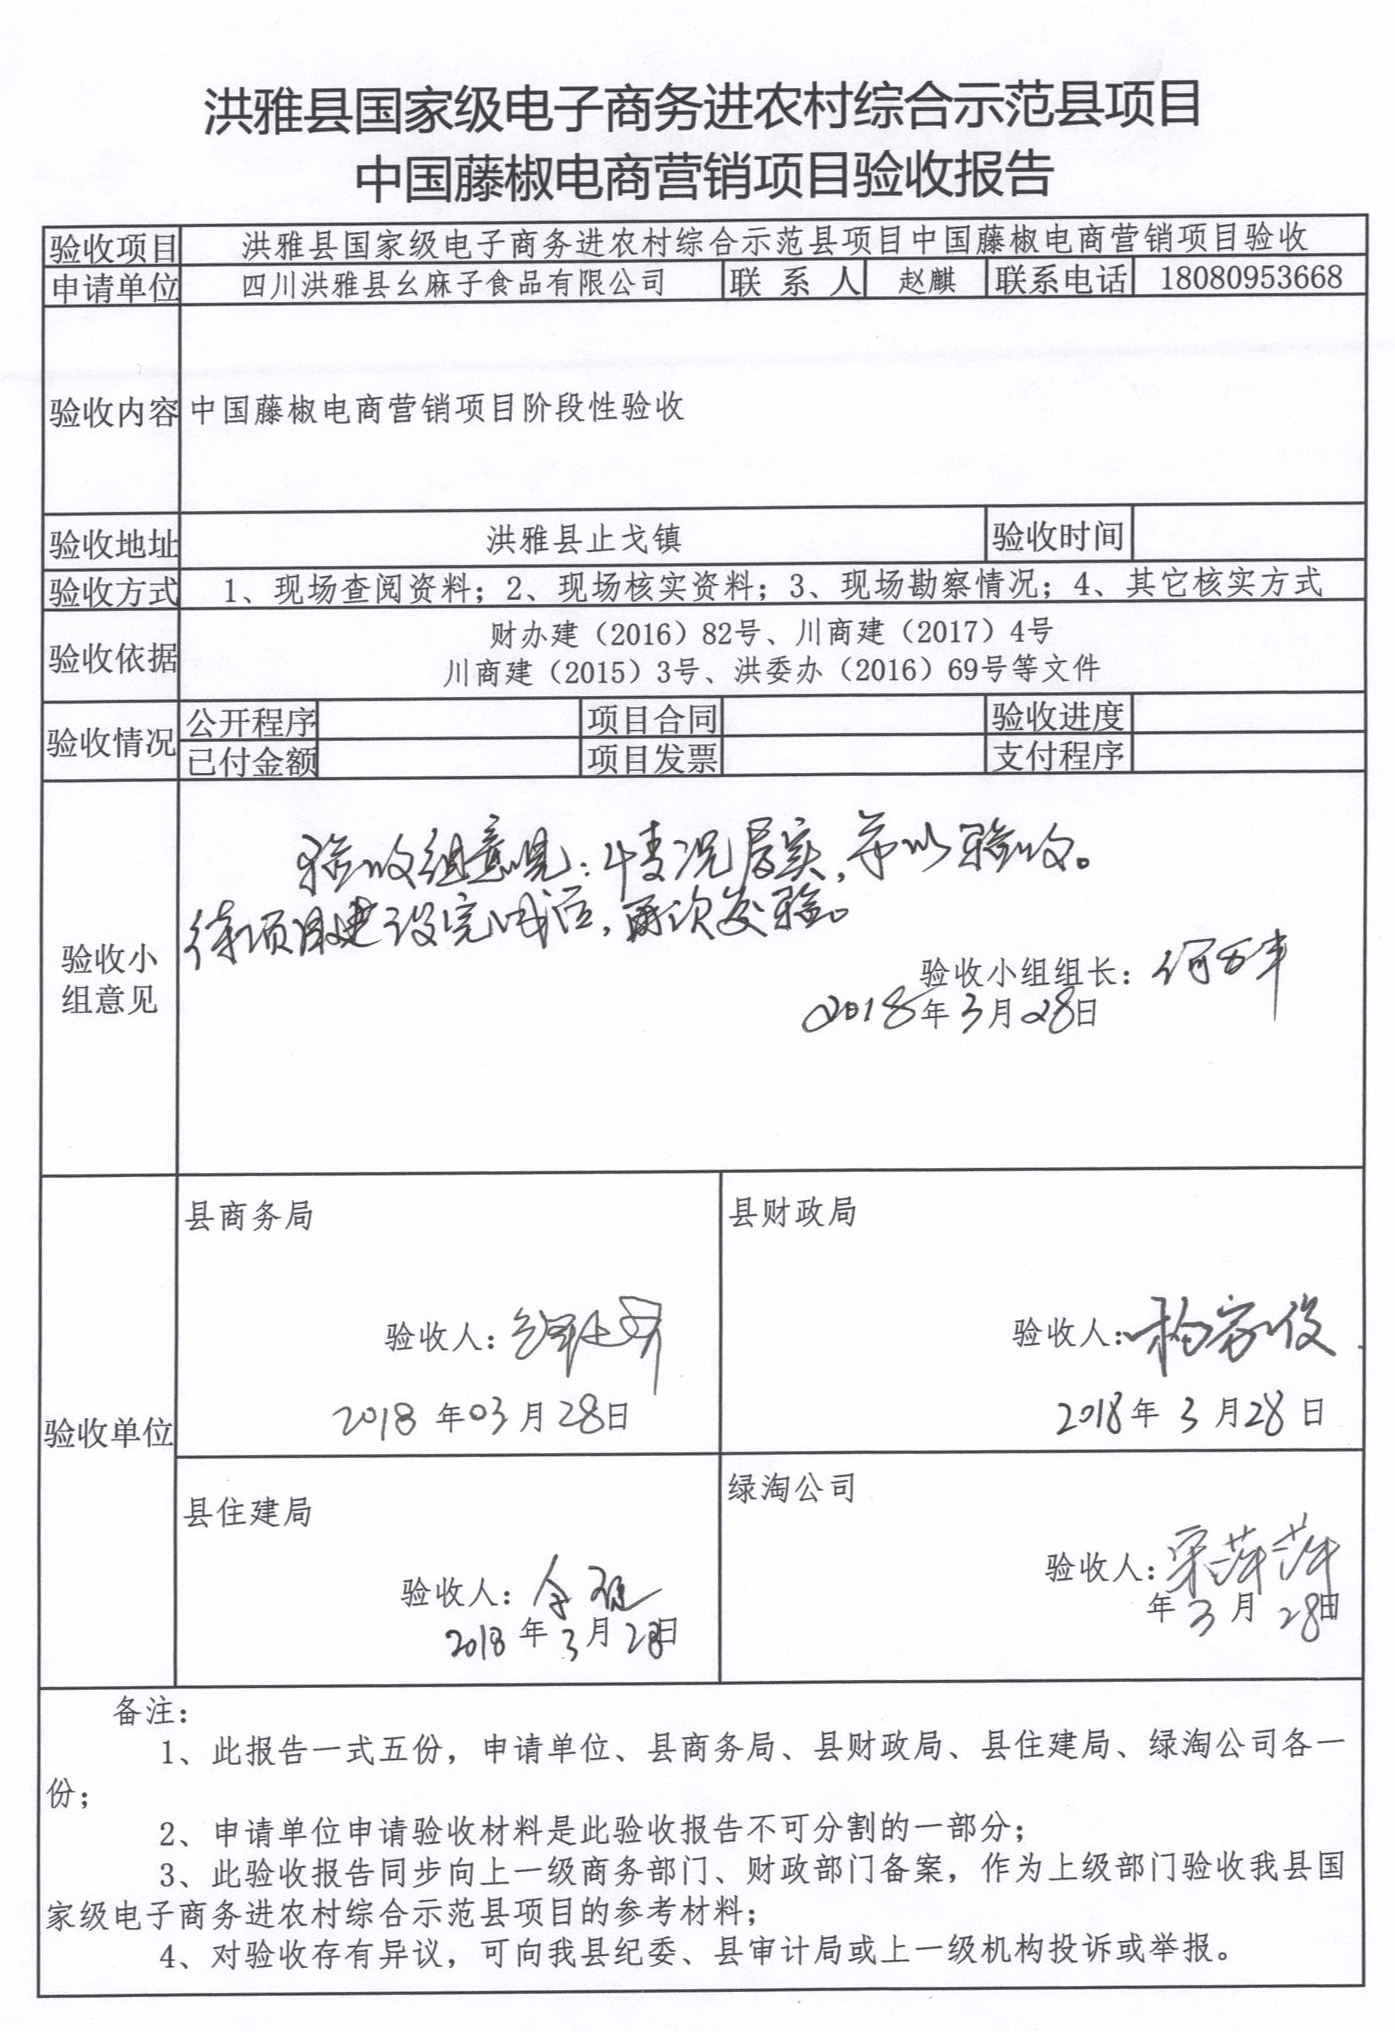 洪雅县国家级电子商务进农村综合示范县项目
中国藤椒电商营销项目验收报告
验收项目 洪雅县国家级电子商务进农村综合示范县项目中国藤椒电商营销项目验收
申请单位 四川洪雅县幺麻子食品有限公司 联系人 赵麒 联系电话 18080953668
验收内容 中国藤椒电商营销项目阶段性验收
验收地址 洪雅县止戈镇 验收时间
验收方式 1、现场查阅资料；2、现场核实资料；3、现场勘察情况；4、其它核实方式
验收依据 财办建（2016）82号、川商建（2017）4号
川商建（2015）3号、洪委办（2016）69号等文件
验收情况 公开程序 项目合同 验收进度
已付金额 项目发票 支付程序
验收组意见：情况属实，予以验收。
待项目建设完成后，再次复验。
验收小组意见
验收小组组长：
2018年3月28日
验收单位
县商务局
验收人：
2018年03月28日
县财政局
验收人：杨家俊
2018年3月28日
县住建局
验收人：
2018年3月28日
绿淘公司
验收人：宋萍萍
年3月28日
备注：
1、此报告一式五份，申请单位、县商务局、县财政局、县住建局、绿淘公司各一
份；
2、申请单位申请验收材料是此验收报告不可分割的一部分；
3、此验收报告同步向上一级商务部门、财政部门备案，作为上级部门验收我县国
家级电子商务进农村综合示范县项目的参考材料；
4、对验收存有异议，可向我县纪委、县审计局或上一级机构投诉或举报。